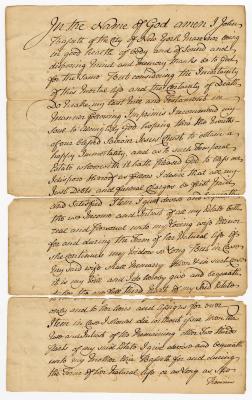 In the Name of God amen I John
Hasportt of the City of New York Marriner being
in good health of Body and of sound and
disposing mind and memory thanks be to God
for the same But considering the Uncertainty
of this Mortal life and the Certainty of Death
Do make my last Will and Testament in
Manner following Imprimis I recommend my
Soul to Almighty God hoping thro the Merits
of our Blessed Saviour Jesus Christ to obtain a
happy Immortality, and as to such Temporal
Estate wherewith it hath pleased God to bless me
I dispose thereof as follows I desire that all my
Just Debts and funeral Charges be first paid
and Satisfied Item I give devise and
the use Income and Interest of all my Estate both
real and personal unto my loving wife
and during the Term of her Natural life if
She continues my Widow so long But in Case
my said wife shall Marry then in such Case
it is my Will and I do hereby give and bequeath
one third of my said Estate
and to her Heirs and Assigns for ever
Item in Case I should die without Issue then the
use and Interest of the Remaining other Two third
Parts of my said Estate I give devise and bequeath
unto my Mother for and during
the Term of her Natural life or as long as She
Remains